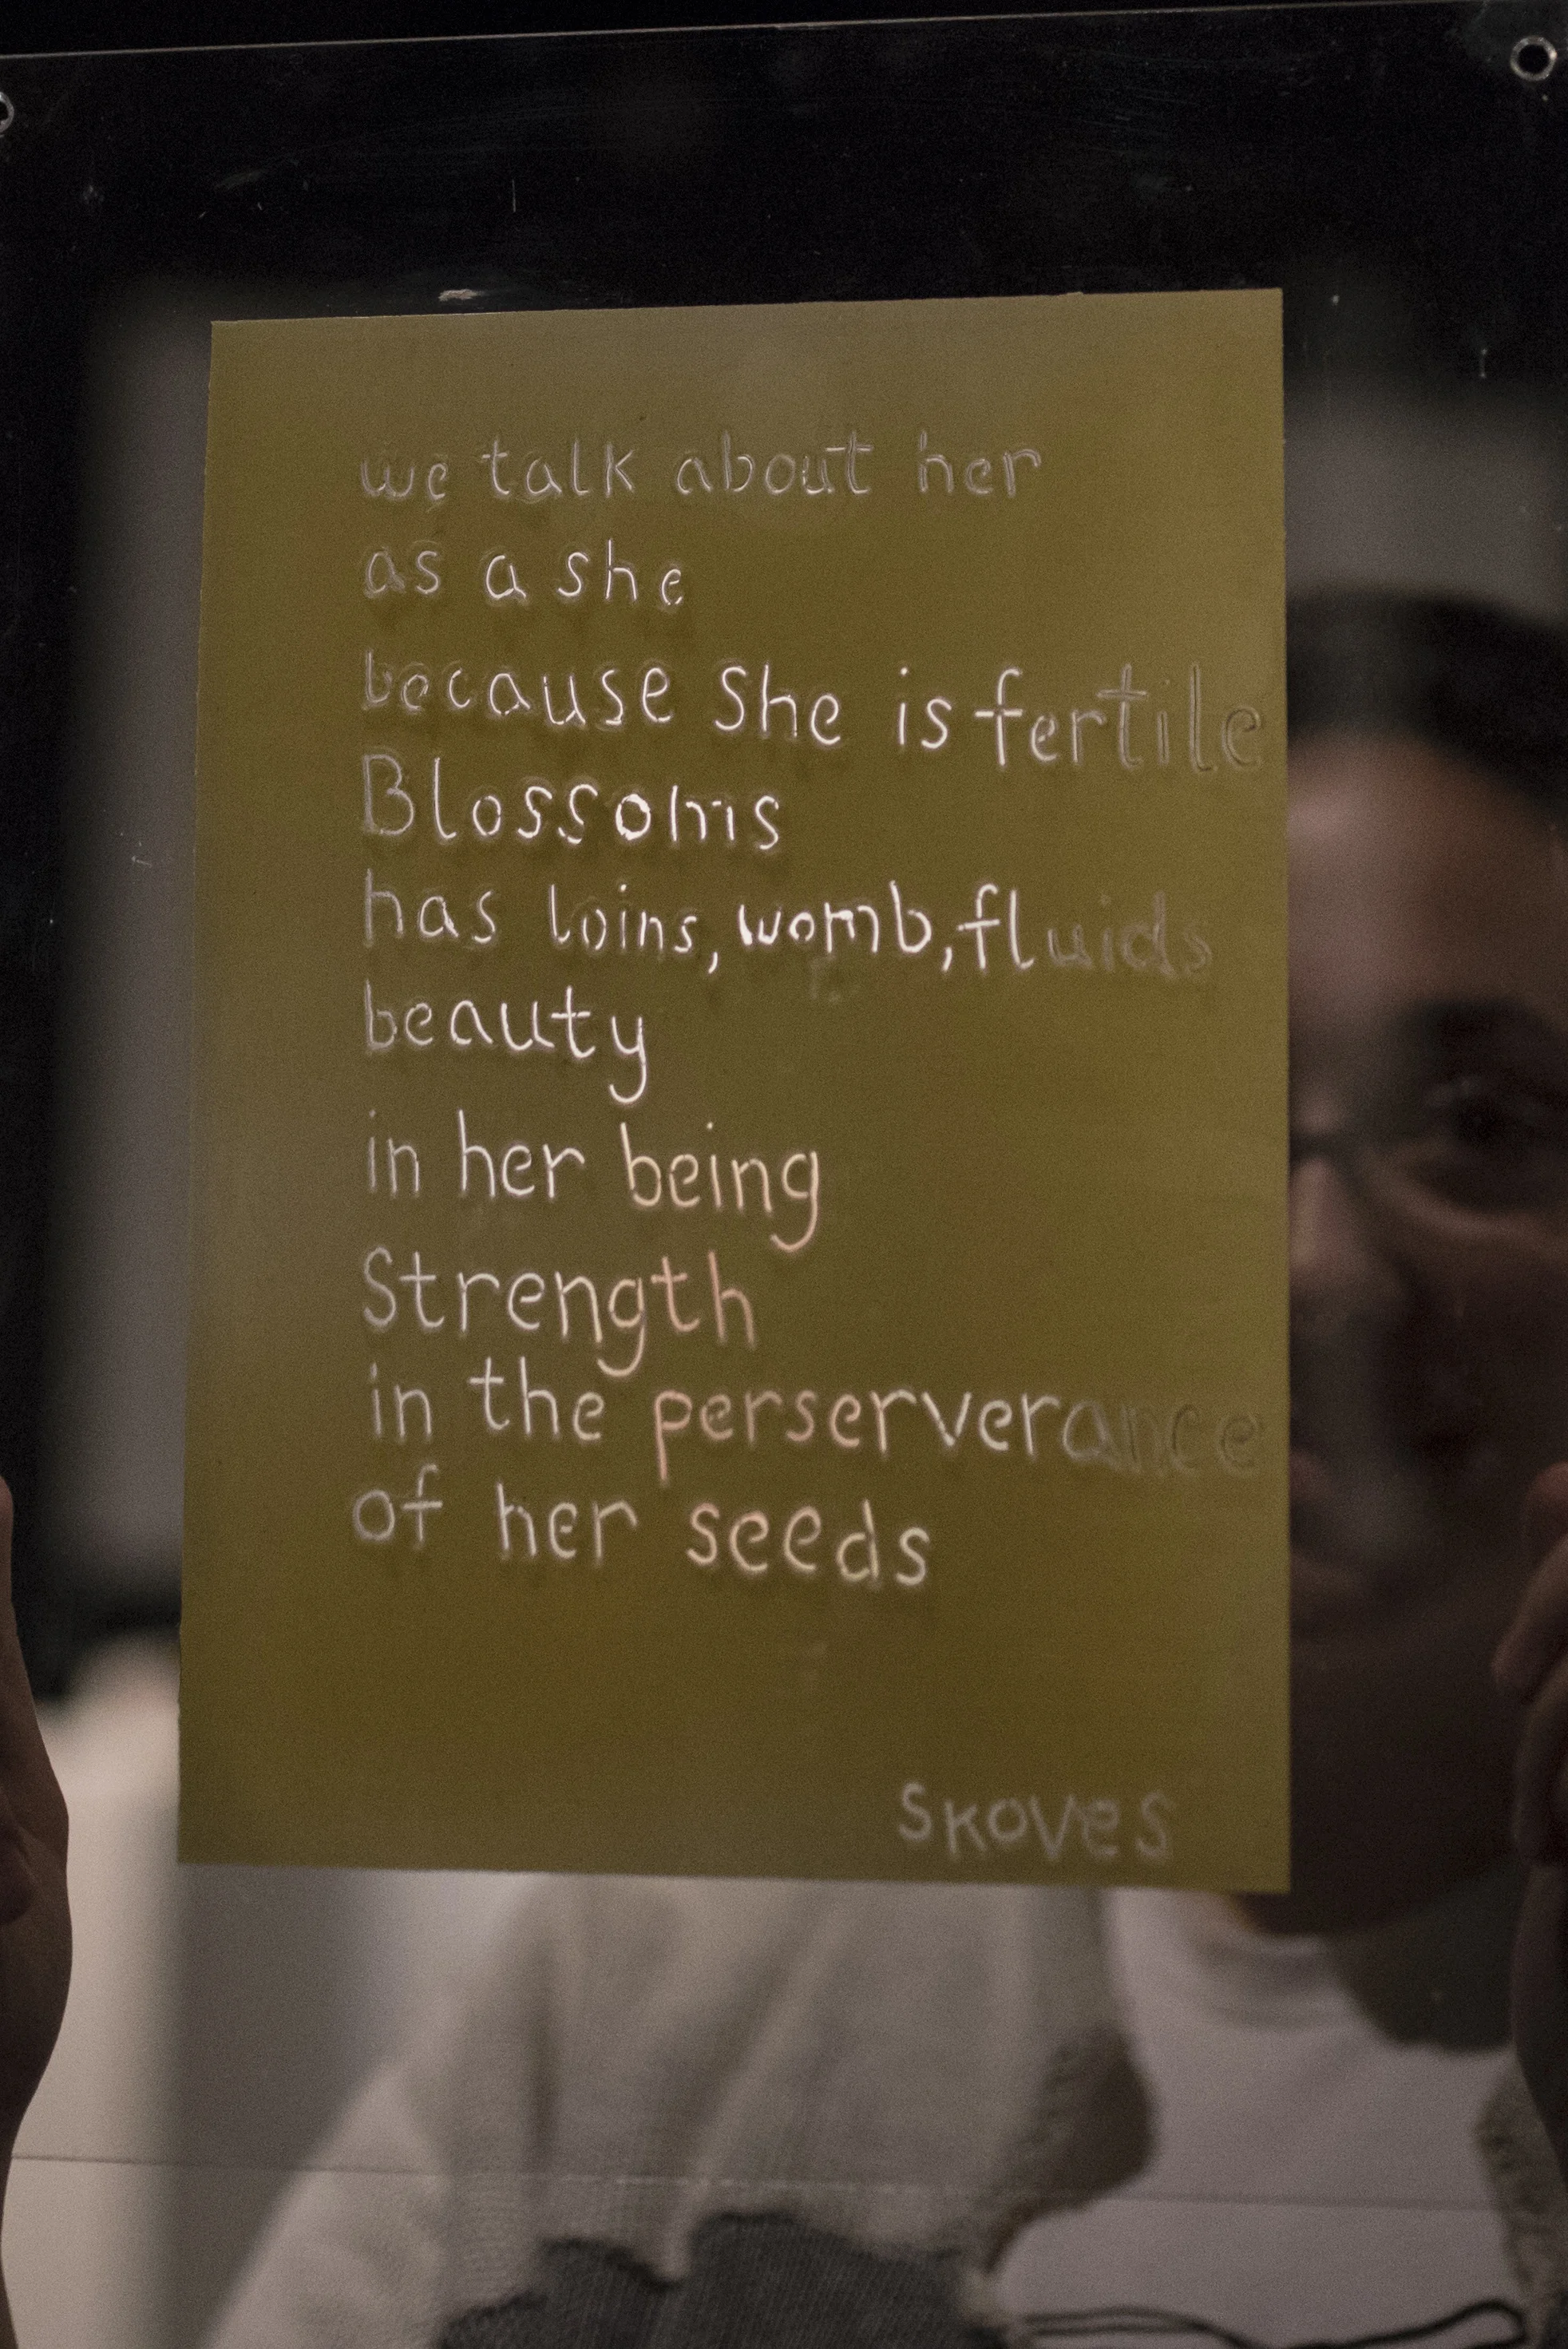 we talk about her
as a she
because she is fertile
Blossoms
has loins, womb, fluids
beauty
in her being
Strength
in the perserverance
of her seeds
SKOVES